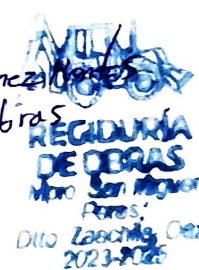 bras
REGIDURÍA
DE OBRAS
San Miguel
Peras,
Dtto Zaachila, Oax
2023-2025